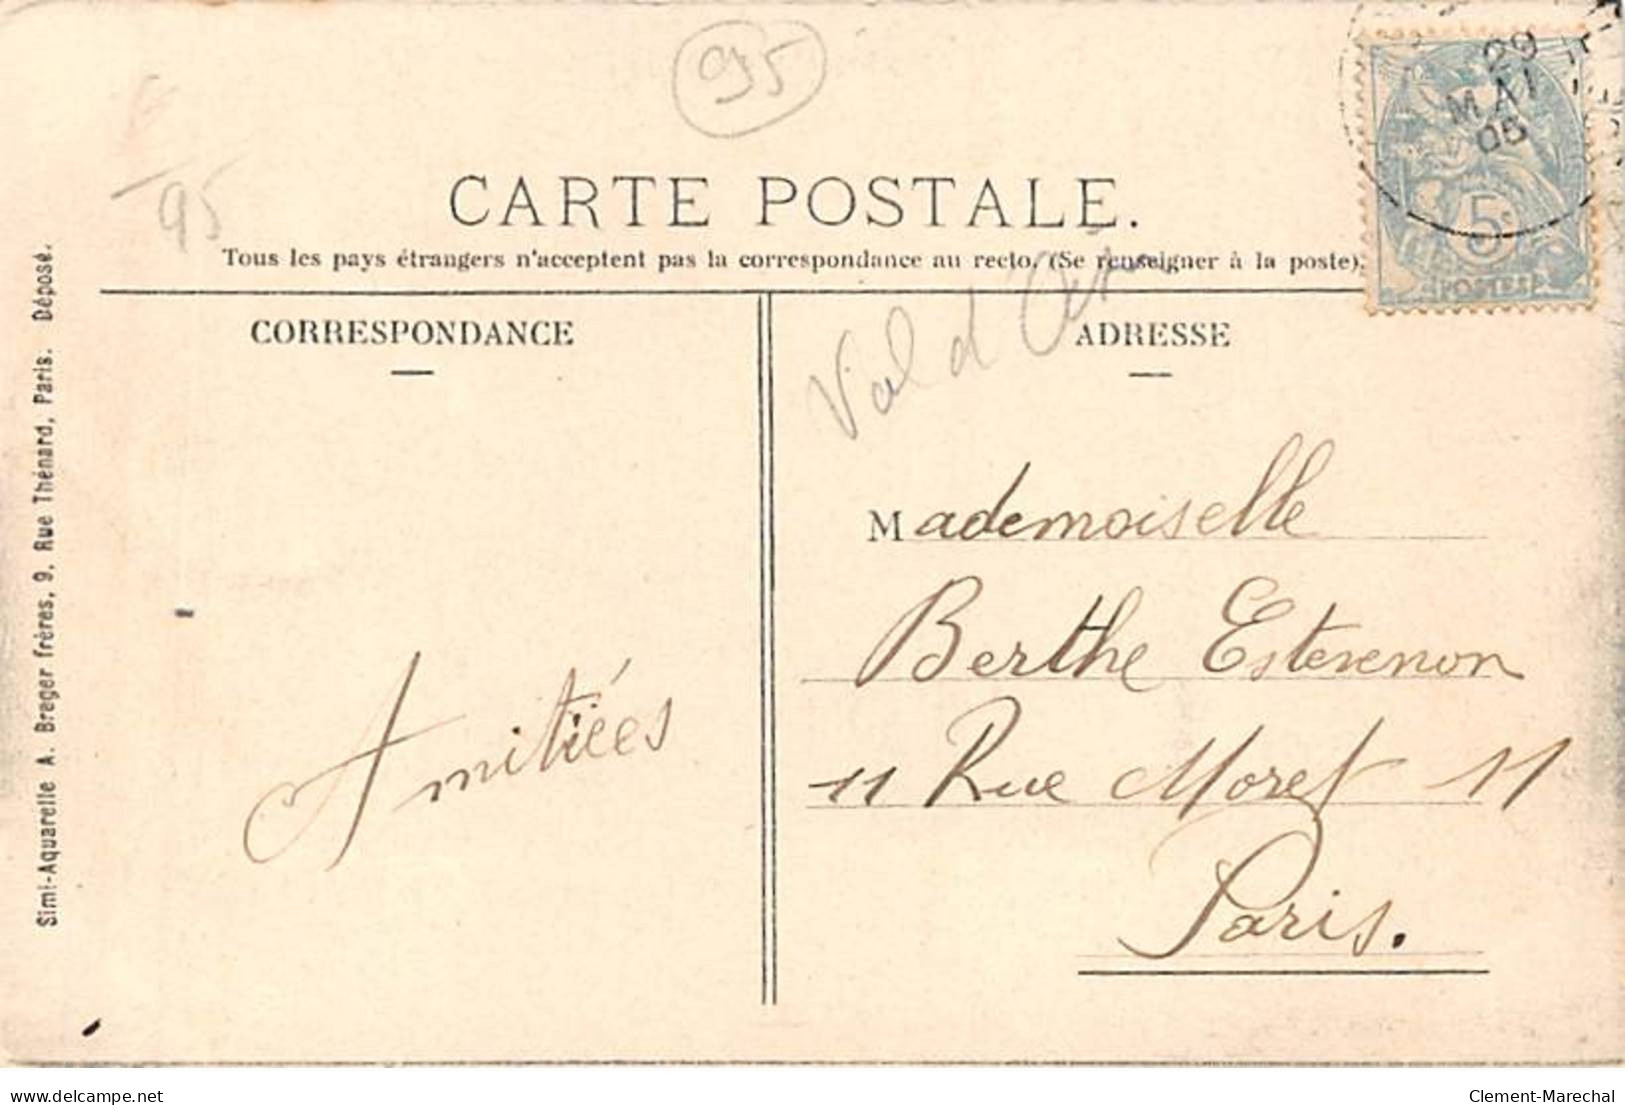 95
95
CARTE POSTALE.
Tous les pays étrangers n'acceptent pas la correspondance au recto. (Se renseigner à la poste).
29
MAI
06
5c
POSTES
CORRESPONDANCE
ADRESSE
Val d'
Mademoiselle
Berthe Estevenon
11 Rue Moret 11
Paris.
Amitiées
Simi-Aquarelle A. Breger frères, 9, Rue Thénard, Paris. Déposé.
delcampe.net
Clement-Marechal